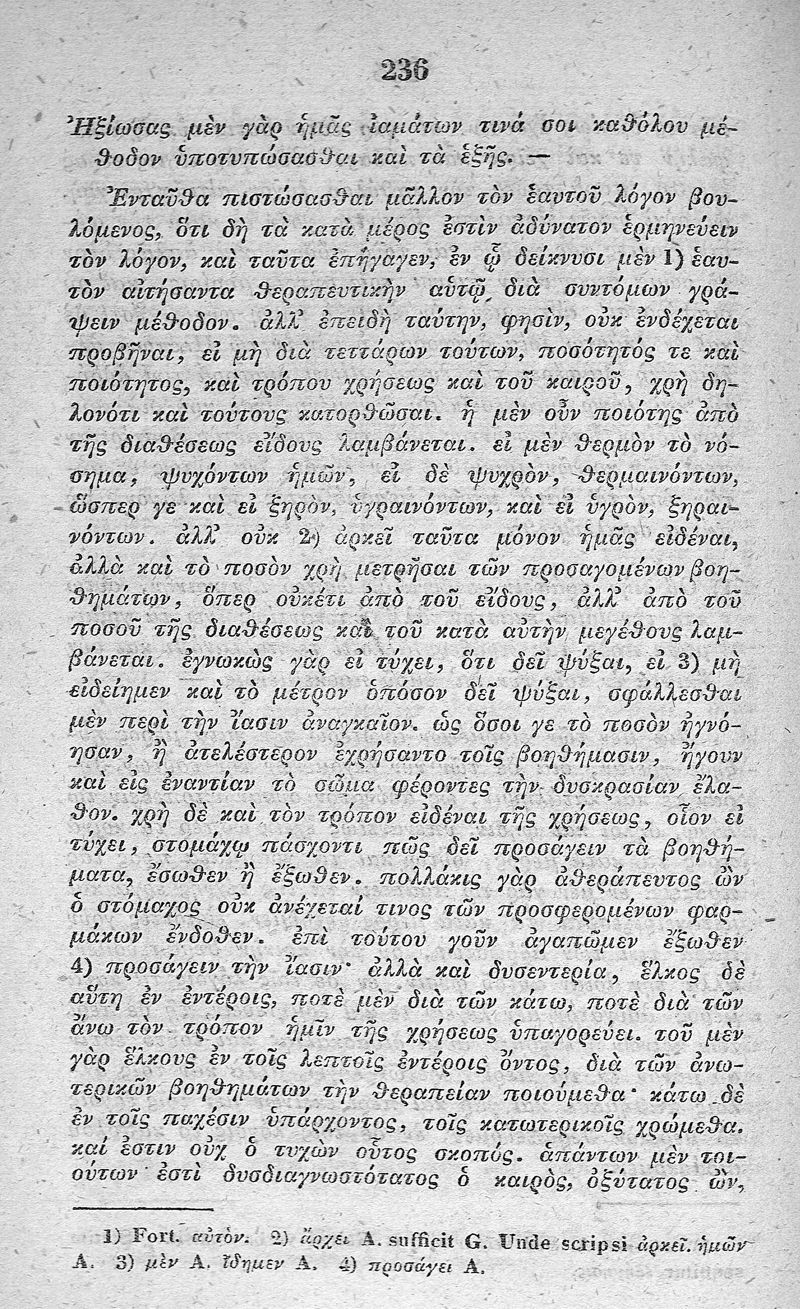 236
Ἠξίωσας μὲν γὰρ ἡμᾶς ἰαμάτων τινά σοι καθόλου μέ-
θοδον ὑποτυπώσασθαι καὶ τὰ ἑξῆς. —
Ἐνταῦθα πιστώσασθαι μᾶλλον τὸν ἑαυτοῦ λόγον βου-
λόμενος, ὅτι δὴ τὰ κατὰ μέρος ἐστὶν ἀδύνατον ἑρμηνεύειν
τὸν λόγον, καὶ ταῦτα ἐπήγαγεν, ἐν ᾧ δείκνυσι μὲν 1) ἑαυ-
τὸν αἰτήσαντα θεραπευτικὴν αὐτῷ διὰ συντόμων γρά-
ψειν μέθοδον. ἀλλ' ἐπειδὴ ταύτην, φησὶν, οὐκ ἐνδέχεται
προβῆναι, εἰ μὴ διὰ τεττάρων τούτων, ποσότητός τε καὶ
ποιότητος, καὶ τρόπου χρήσεως καὶ τοῦ καιροῦ, χρὴ δη-
λονότι καὶ τούτους κατορθῶσαι. ἡ μὲν οὖν ποιότης ἀπὸ
τῆς διαθέσεως εἴδους λαμβάνεται. εἰ μὲν θερμὸν τὸ νό-
σημα, ψυχόντων ἡμῶν, εἰ δὲ ψυχρὸν, θερμαινόντων,
ὥσπερ γε καὶ εἰ ξηρὸν, ὑγραινόντων, καὶ εἰ ὑγρὸν, ξηραι-
νόντων. ἀλλ' οὐκ 2) ἀρκεῖ ταῦτα μόνον ἡμᾶς εἰδέναι,
ἀλλὰ καὶ τὸ ποσὸν χρὴ μετρῆσαι τῶν προσαγομένων βοη-
θημάτων, ὅπερ οὐκέτι ἀπὸ τοῦ εἴδους, ἀλλ' ἀπὸ τοῦ
ποσοῦ τῆς διαθέσεως καὶ τοῦ κατὰ αὐτὴν μεγέθους λαμ-
βάνεται. ἐγνωκὼς γὰρ εἰ τύχει, ὅτι δεῖ ψύξαι, εἰ 3) μὴ
εἰδείημεν καὶ τὸ μέτρον ὁπόσον δεῖ ψύξαι, σφάλλεσθαι
μὲν περὶ τὴν ἴασιν ἀναγκαῖον. ὡς ὅσοι γε τὸ ποσὸν ἠγνό-
ησαν, ἢ ἀτελέστερον ἐχρήσαντο τοῖς βοηθήμασιν, ἤγουν
καὶ εἰς ἐναντίαν τὸ σῶμα φέροντες τὴν δυσκρασίαν ἔλα-
θον. χρὴ δὲ καὶ τὸν τρόπον εἰδέναι τῆς χρήσεως, οἷον εἰ
τύχει, στομάχῳ πάσχοντι πῶς δεῖ προσάγειν τὰ βοηθή-
ματα, ἔσωθεν ἢ ἔξωθεν. πολλάκις γὰρ ἀθεράπευτος ὢν
ὁ στόμαχος οὐκ ἀνέχεταί τινος τῶν προσφερομένων φαρ-
μάκων ἔνδοθεν. ἐπὶ τούτου γοῦν ἀγαπῶμεν ἔξωθεν
4) προσάγειν τὴν ἴασιν· ἀλλὰ καὶ δυσεντερία, ἕλκος δὲ
αὕτη ἐν ἐντέροις, ποτὲ μὲν διὰ τῶν κάτω, ποτὲ διὰ τῶν
ἄνω τὸν τρόπον ἡμῖν τῆς χρήσεως ὑπαγορεύει. τοῦ μὲν
γὰρ ἕλκους ἐν τοῖς λεπτοῖς ἐντέροις ὄντος, διὰ τῶν ἀνω-
τερικῶν βοηθημάτων τὴν θεραπείαν ποιούμεθα· κάτω δὲ
ἐν τοῖς παχέσιν ὑπάρχοντος, τοῖς κατωτερικοῖς χρώμεθα.
καί ἐστιν οὐχ ὁ τυχὼν οὗτος σκοπός. ἁπάντων μὲν τοι-
ούτων ἐστὶ δυσδιαγνωστότατος ὁ καιρὸς, ὀξύτατος ὢν,
1) Fort. αὐτὸν. 2) ἄρχει A. sufficit G. Unde scripsi ἀρκεῖ. ἡμῶν
A. 3) μὲν A. ἴδημεν A. 4) προσάγει A.